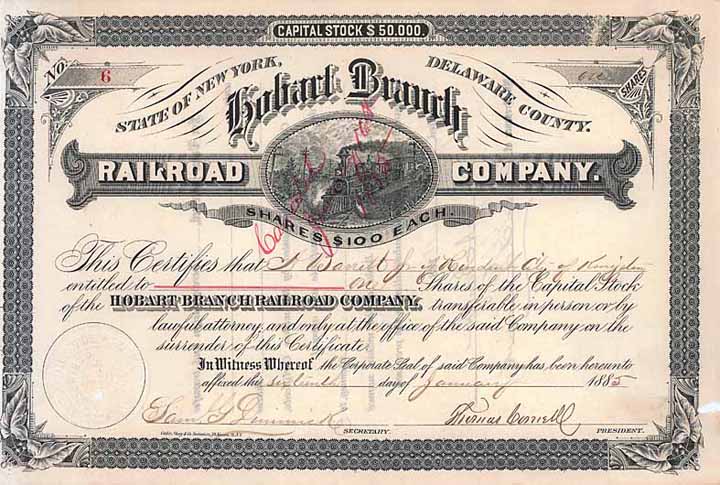 CAPITAL STOCK $50,000.
No. 6
one SHARES
STATE OF NEW YORK, DELAWARE COUNTY.
Hobart Branch
RAILROAD COMPANY.
SHARES $100 EACH.
This Certifies that Jr of City of
entitled to one Shares of the Capital Stock
of the HOBART BRANCH RAILROAD COMPANY, transferable in person or by
lawful attorney, and only at the office of the said Company on the
surrender of this Certificate.
In Witness Whereof the Corporate Seal of said Company has been hereunto
affixed this sixteenth day of January 1885
Sam G Dimmick Thomas Cornell
SECRETARY. PRESIDENT.